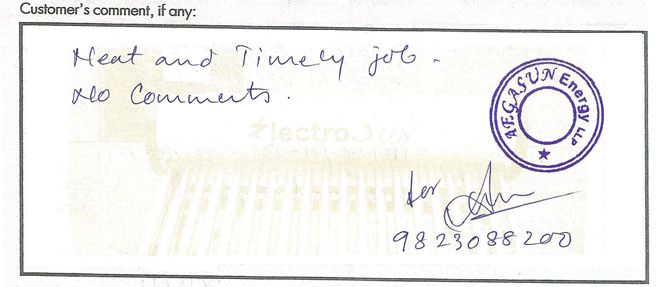 Customer's comment, if any:
Neat and Timely job.
No Comments.
ElectroSUN
AEGASUN Energy LLP
for
9823088200